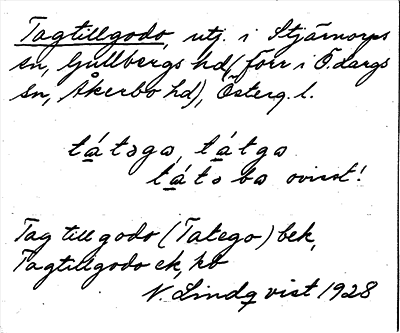 Tagtillgodo, utj. i Stjärnorps
sn, Gullbergs hd (förr i Ö. Largs
sn, Åkerbo hd), Österg. l.
tátəga, tátga
tátə ba ovisst!
Tag till godo (Tatego) bek,
Tagtillgodo ek, ko
N. Lindqvist 1928